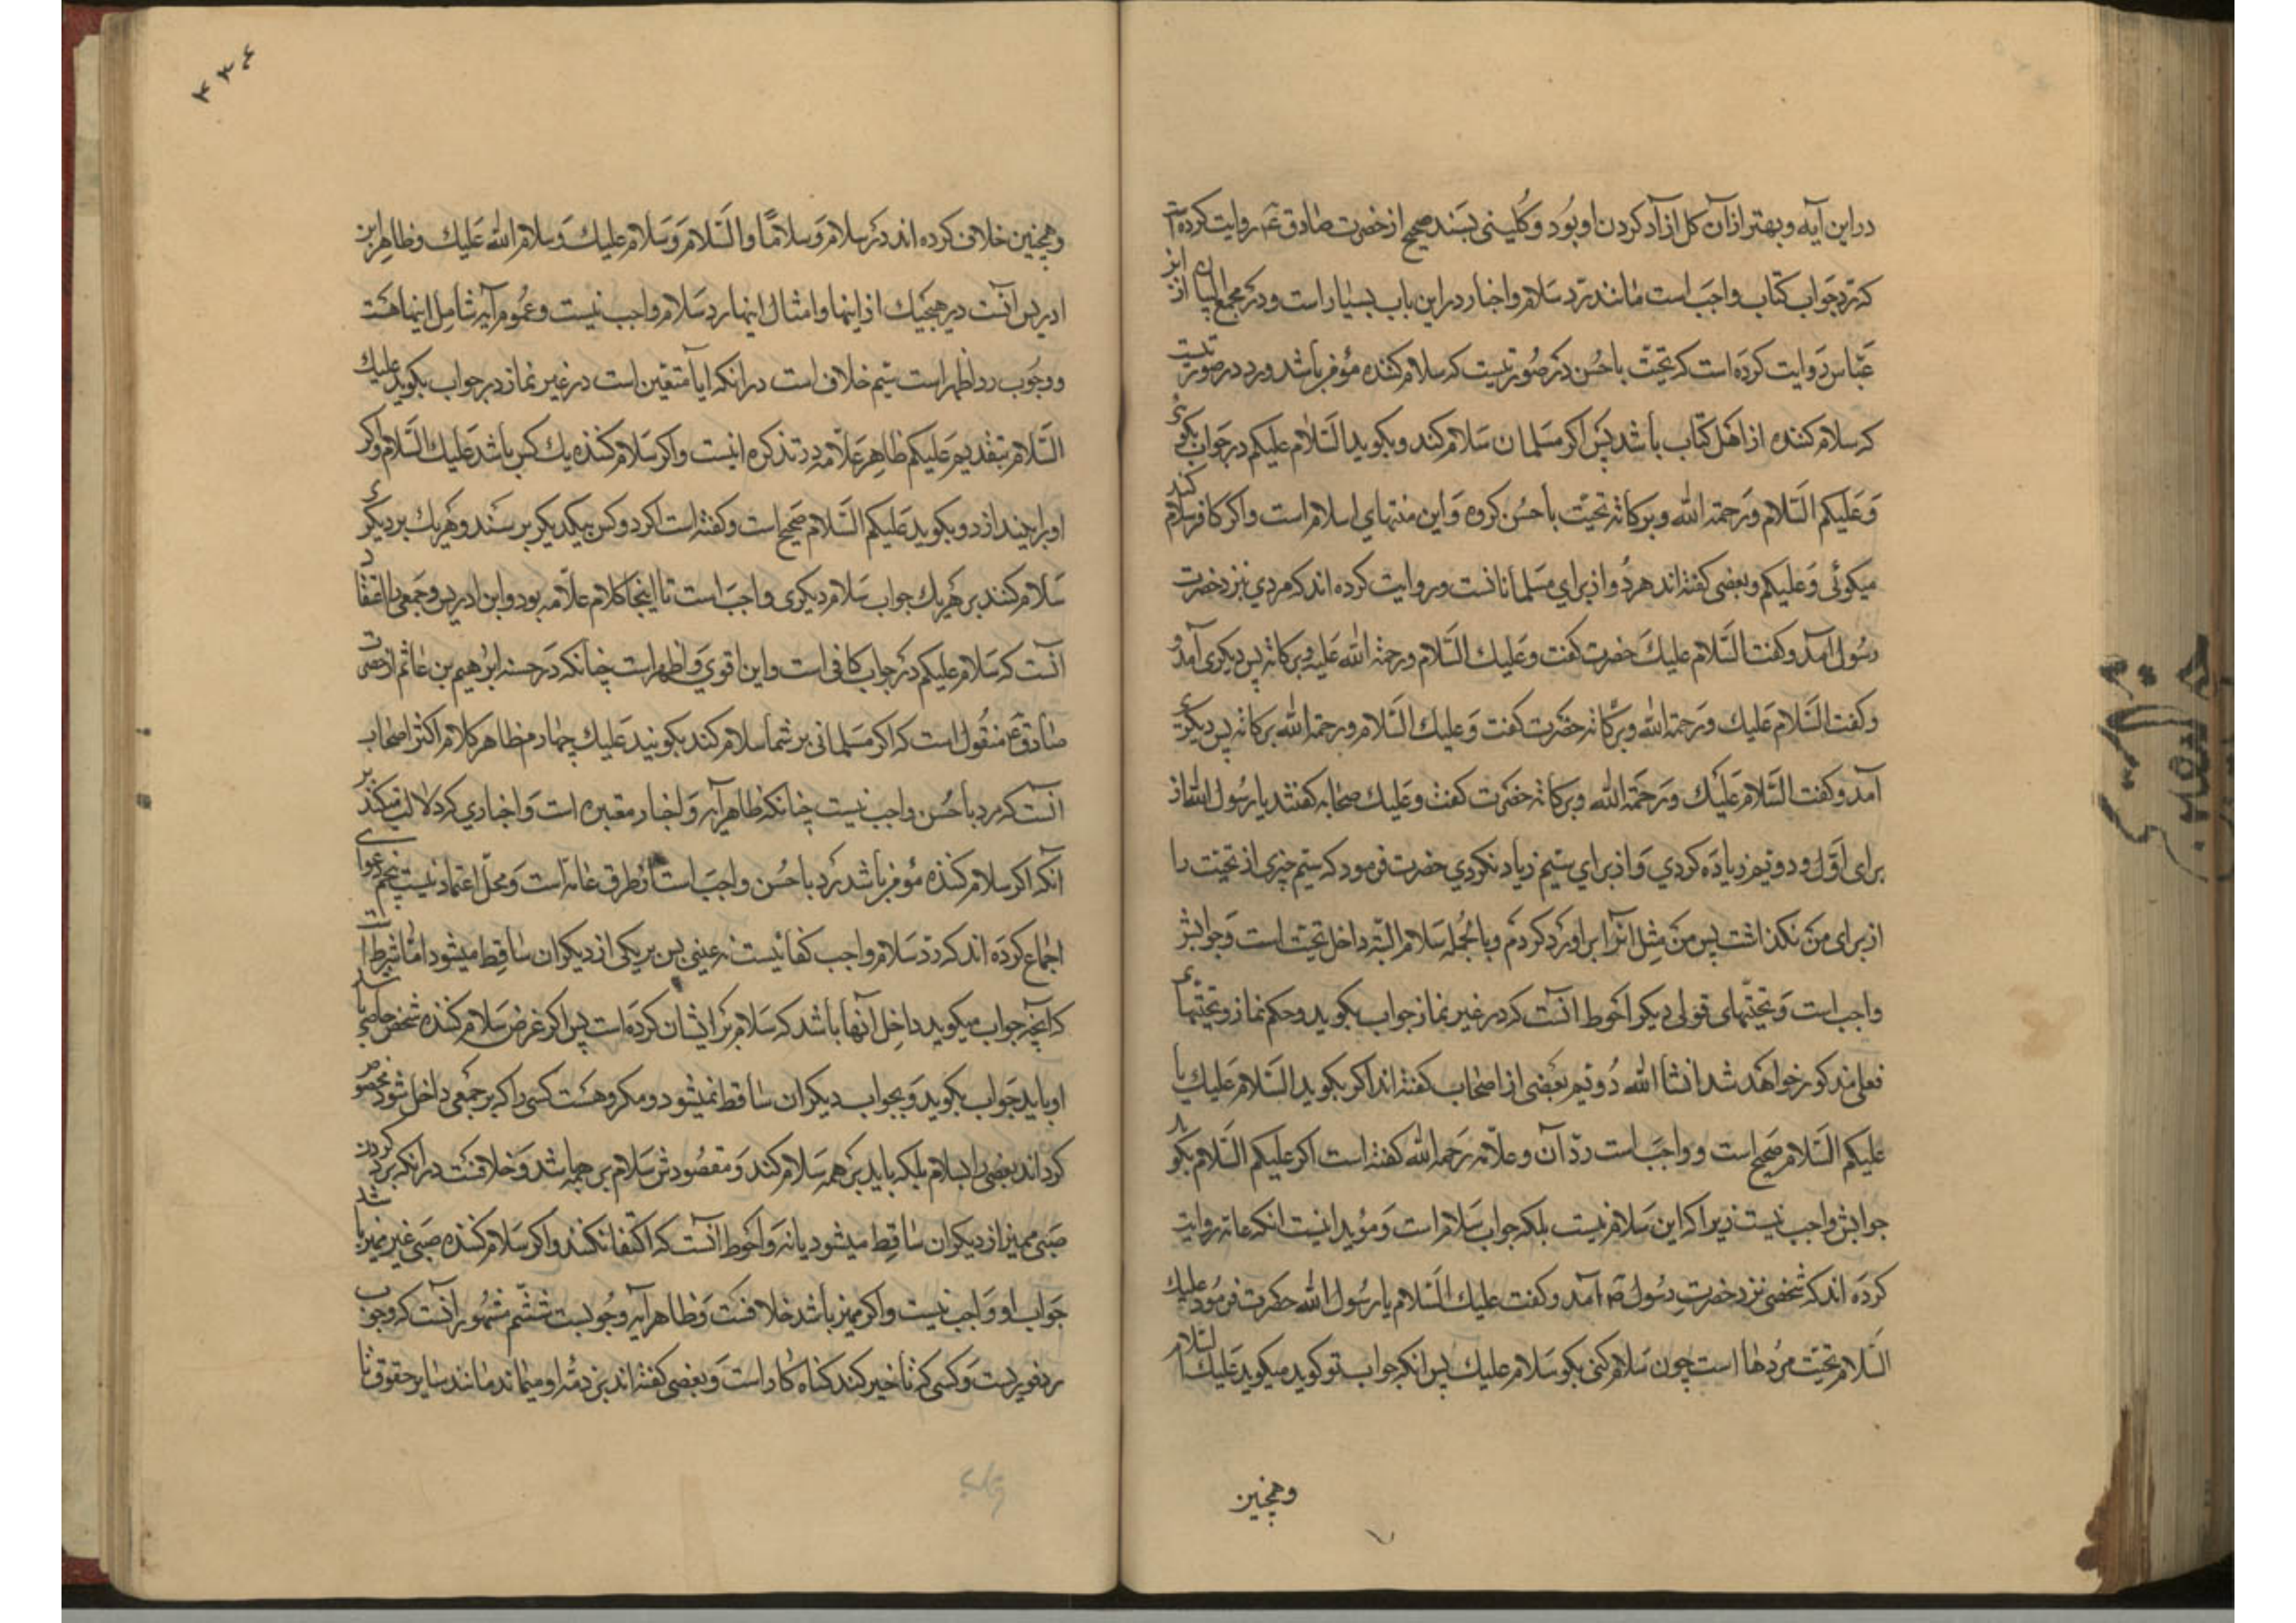 در این آیه و بهتر از آن کل ازاد کردن او بود و کلینی بسند صحیح از حضرت صادق ع روایت کرده است
که رد جواب کتاب واجب است مانند رد سلام و اخبار در این باب بسیار است و در مجمع البیان از ابن
عباس روایت کرده است که تحیت باحسن در صورتیست که سلام کننده مؤمن باشد و رد در صورتیست
که سلام کننده از اهل کتاب باشد پس اکر مسلمان سلام کند و بکوید السلام علیکم در جواب بکوئی
وعلیکم السلام ورحمة الله وبرکاته تحیت باحسن کرده و این منتهای اسلام است و اکر کافر سلام کند
میکوئی وعلیکم و بعضی کفته اند هر دو از برای مسلمانانست و روایت کرده اند که مردی نزد حضرت
رسول آمد و کفت السلام علیك حضرت کفت وعلیك السلام ورحمة الله علیه وبرکاته پس دیکری آمد و
و کفت السلام علیك ورحمة الله وبرکاته حضرت کفت وعلیك السلام ورحمة الله برکاته پس دیکری
آمد و کفت السلام علیك ورحمة الله وبرکاته حضرت کفت وعلیك صحابه کفتند یا رسول الله از
برای اول و دویم زیاده کردی و از برای سیم زیاد نکردی حضرت فرمود که سیم چیزی از تحیت را
از برای من نکذاشت پس من مثل انرا بر او رد کردم و بالجمله سلام البته داخل تحیت است و جوابش
واجب است و تحیتهای قولی دیکر احوط آنست که در غیر نماز جواب بکوید و حکم نماز و تحیتهای
فعلی مذکور خواهد شد انشا الله دویم بعضی از اصحاب کفته اند اکر بکوید السلام علیك یا
علیکم السلام صحیح است و واجب است رد آن و علامه رحمه الله کفته است اکر علیکم السلام بکوید
جوابش واجب نیست زیرا که این سلام نیست بلکه جواب سلام است و مؤید اینست انکه عامه روایت
کرده اند که شخصی نزد حضرت رسول ص آمد و کفت علیك السلام یا رسول الله حضرت فرمود علیك
السلام تحیت مردها است چون سلام کنی بکو سلام علیك پس انکه جواب تو کوید میکوید علیك السلام
وهمچنین
۳۳۴
وهمچنین خلاف کرده اند در سلام و سلاما و السلام و سلام علیك و سلام الله علیك و ظاهر ابن
ادریس انست در هیچیك از اینها و امثال اینها رد سلام واجب نیست و عموم آیه شامل اینها هست
و وجوب رد اظهر است سیم خلاف است در انکه ایا متعین است در غیر نماز در جواب بکوید علیك
السلام بتقدیم علیکم ظاهر علامه در تذکره اینست و اکر سلام کننده یك کس باشد علیك السلام و اکر
او را بیندازد و بکوید علیکم السلام صحیح است و کفته است اکر دو کس بیکدیکر برسند و هر یك بر دیکری
سلام کنند بر هر یك جواب سلام دیکری واجب است تا اینجا کلام علامه بود و ابن ادریس و جمعی را اعتقاد
انست که سلام علیکم در جواب کافی است و این اقوی و اظهر است چنانکه در حسنه ابرهیم بن هاشم از حضرت
صادق ع منقول است که اکر مسلمانی بر شما سلام کند بکوئید علیك چهارم ظاهر کلام اکثر اصحاب
انست که رد باحسن واجب نیست چنانکه ظاهر آیه و اخبار معتبره است و اخباری که دلالت میکند بر
آنکه اکر سلام کننده مؤمن باشد رد باحسن واجب است از طرق عامه است و محل اعتماد نیست پنجم دعوای
اجماع کرده اند که رد سلام واجب کفائیست نه عینی پس بر یکی از دیکران ساقط میشود اما بشرط آن
که آنچه جواب میکوید داخل آنها باشد که سلام بر ایشان کرده است پس اکر غرض سلام کننده شخص خاصی باشد
او باید جواب بکوید و بجواب دیکران ساقط نمیشود و مکروهست کسی را که بر جمعی داخل شود مخصوص
کرداند بعضی را بسلام بلکه باید بر همه سلام کند و مقصودش سلام بر همه باشد و خلافست در انکه برد کردن
صبی ممیز از دیکران ساقط میشود یا نه و احوط آنست که اکتفا نکنند و اکر سلام کننده صبی غیر ممیز باشد
جواب او واجب نیست و اکر ممیز باشد خلافست و ظاهر آیه وجوبست ششم مشهور آنست که وجوب
رد فوریست و کسی که تاخیر کند کناه کار است و بعضی کفته اند بر ذمه او میماند مانند سایر حقوق تا